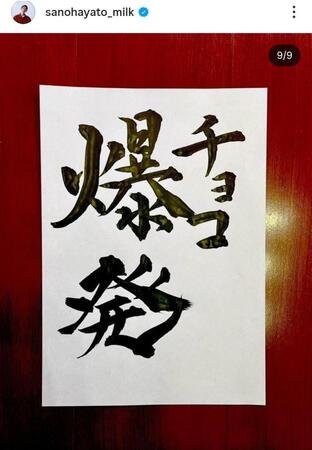 sanohayato_milk
9/9
チョコ
爆発